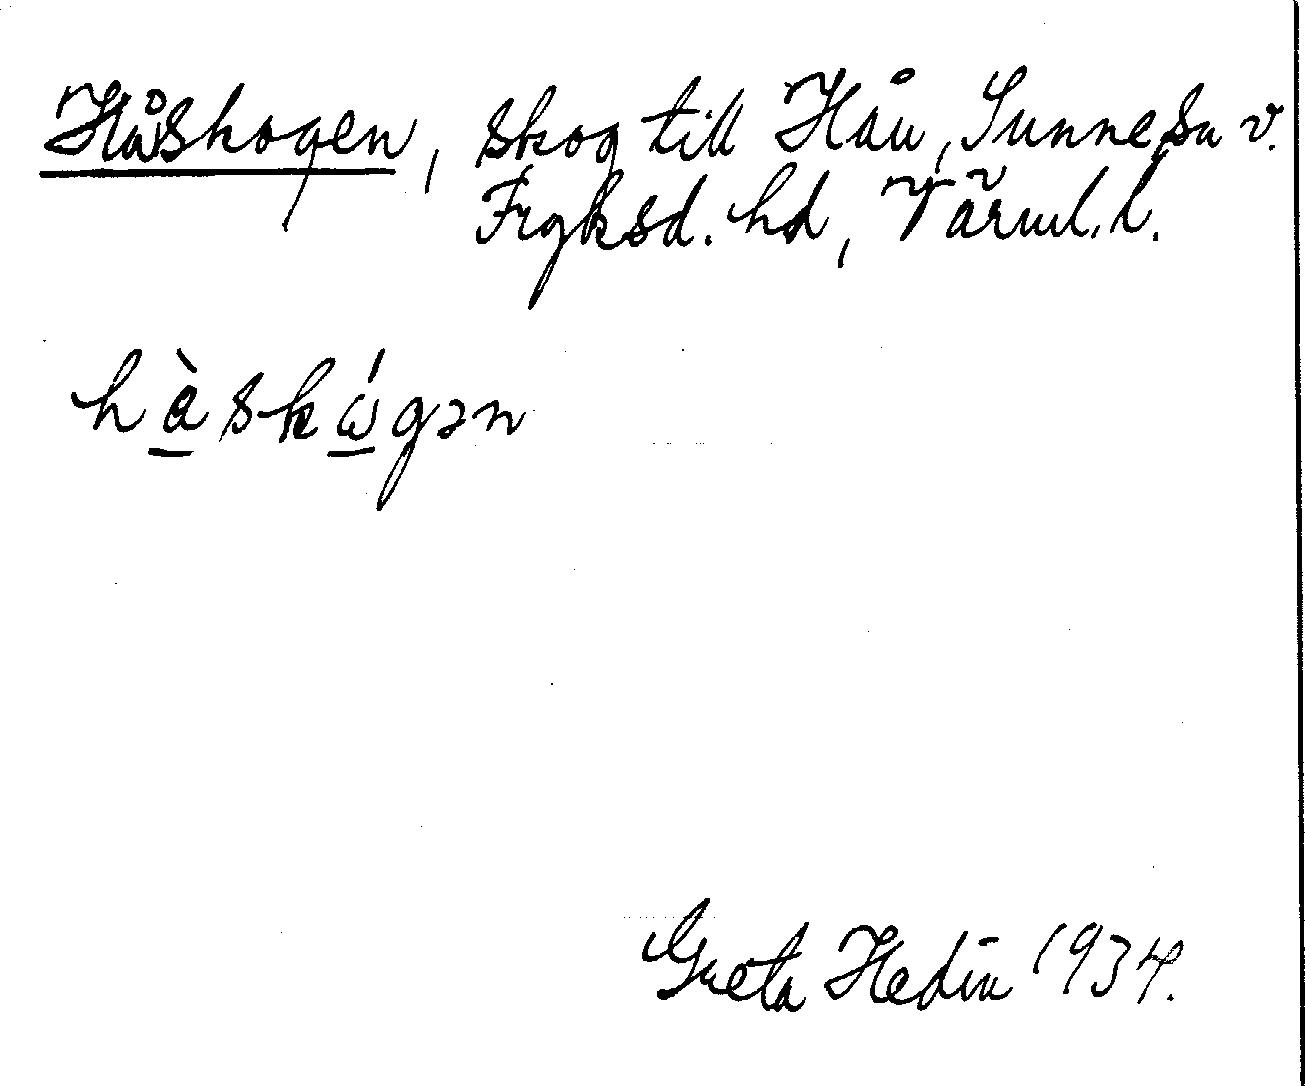 Håskogen, skog till Hån, Sunne sn v.
Fryksd. hd, Värml. l.
hàskẃgən
Greta Hedin 1934.